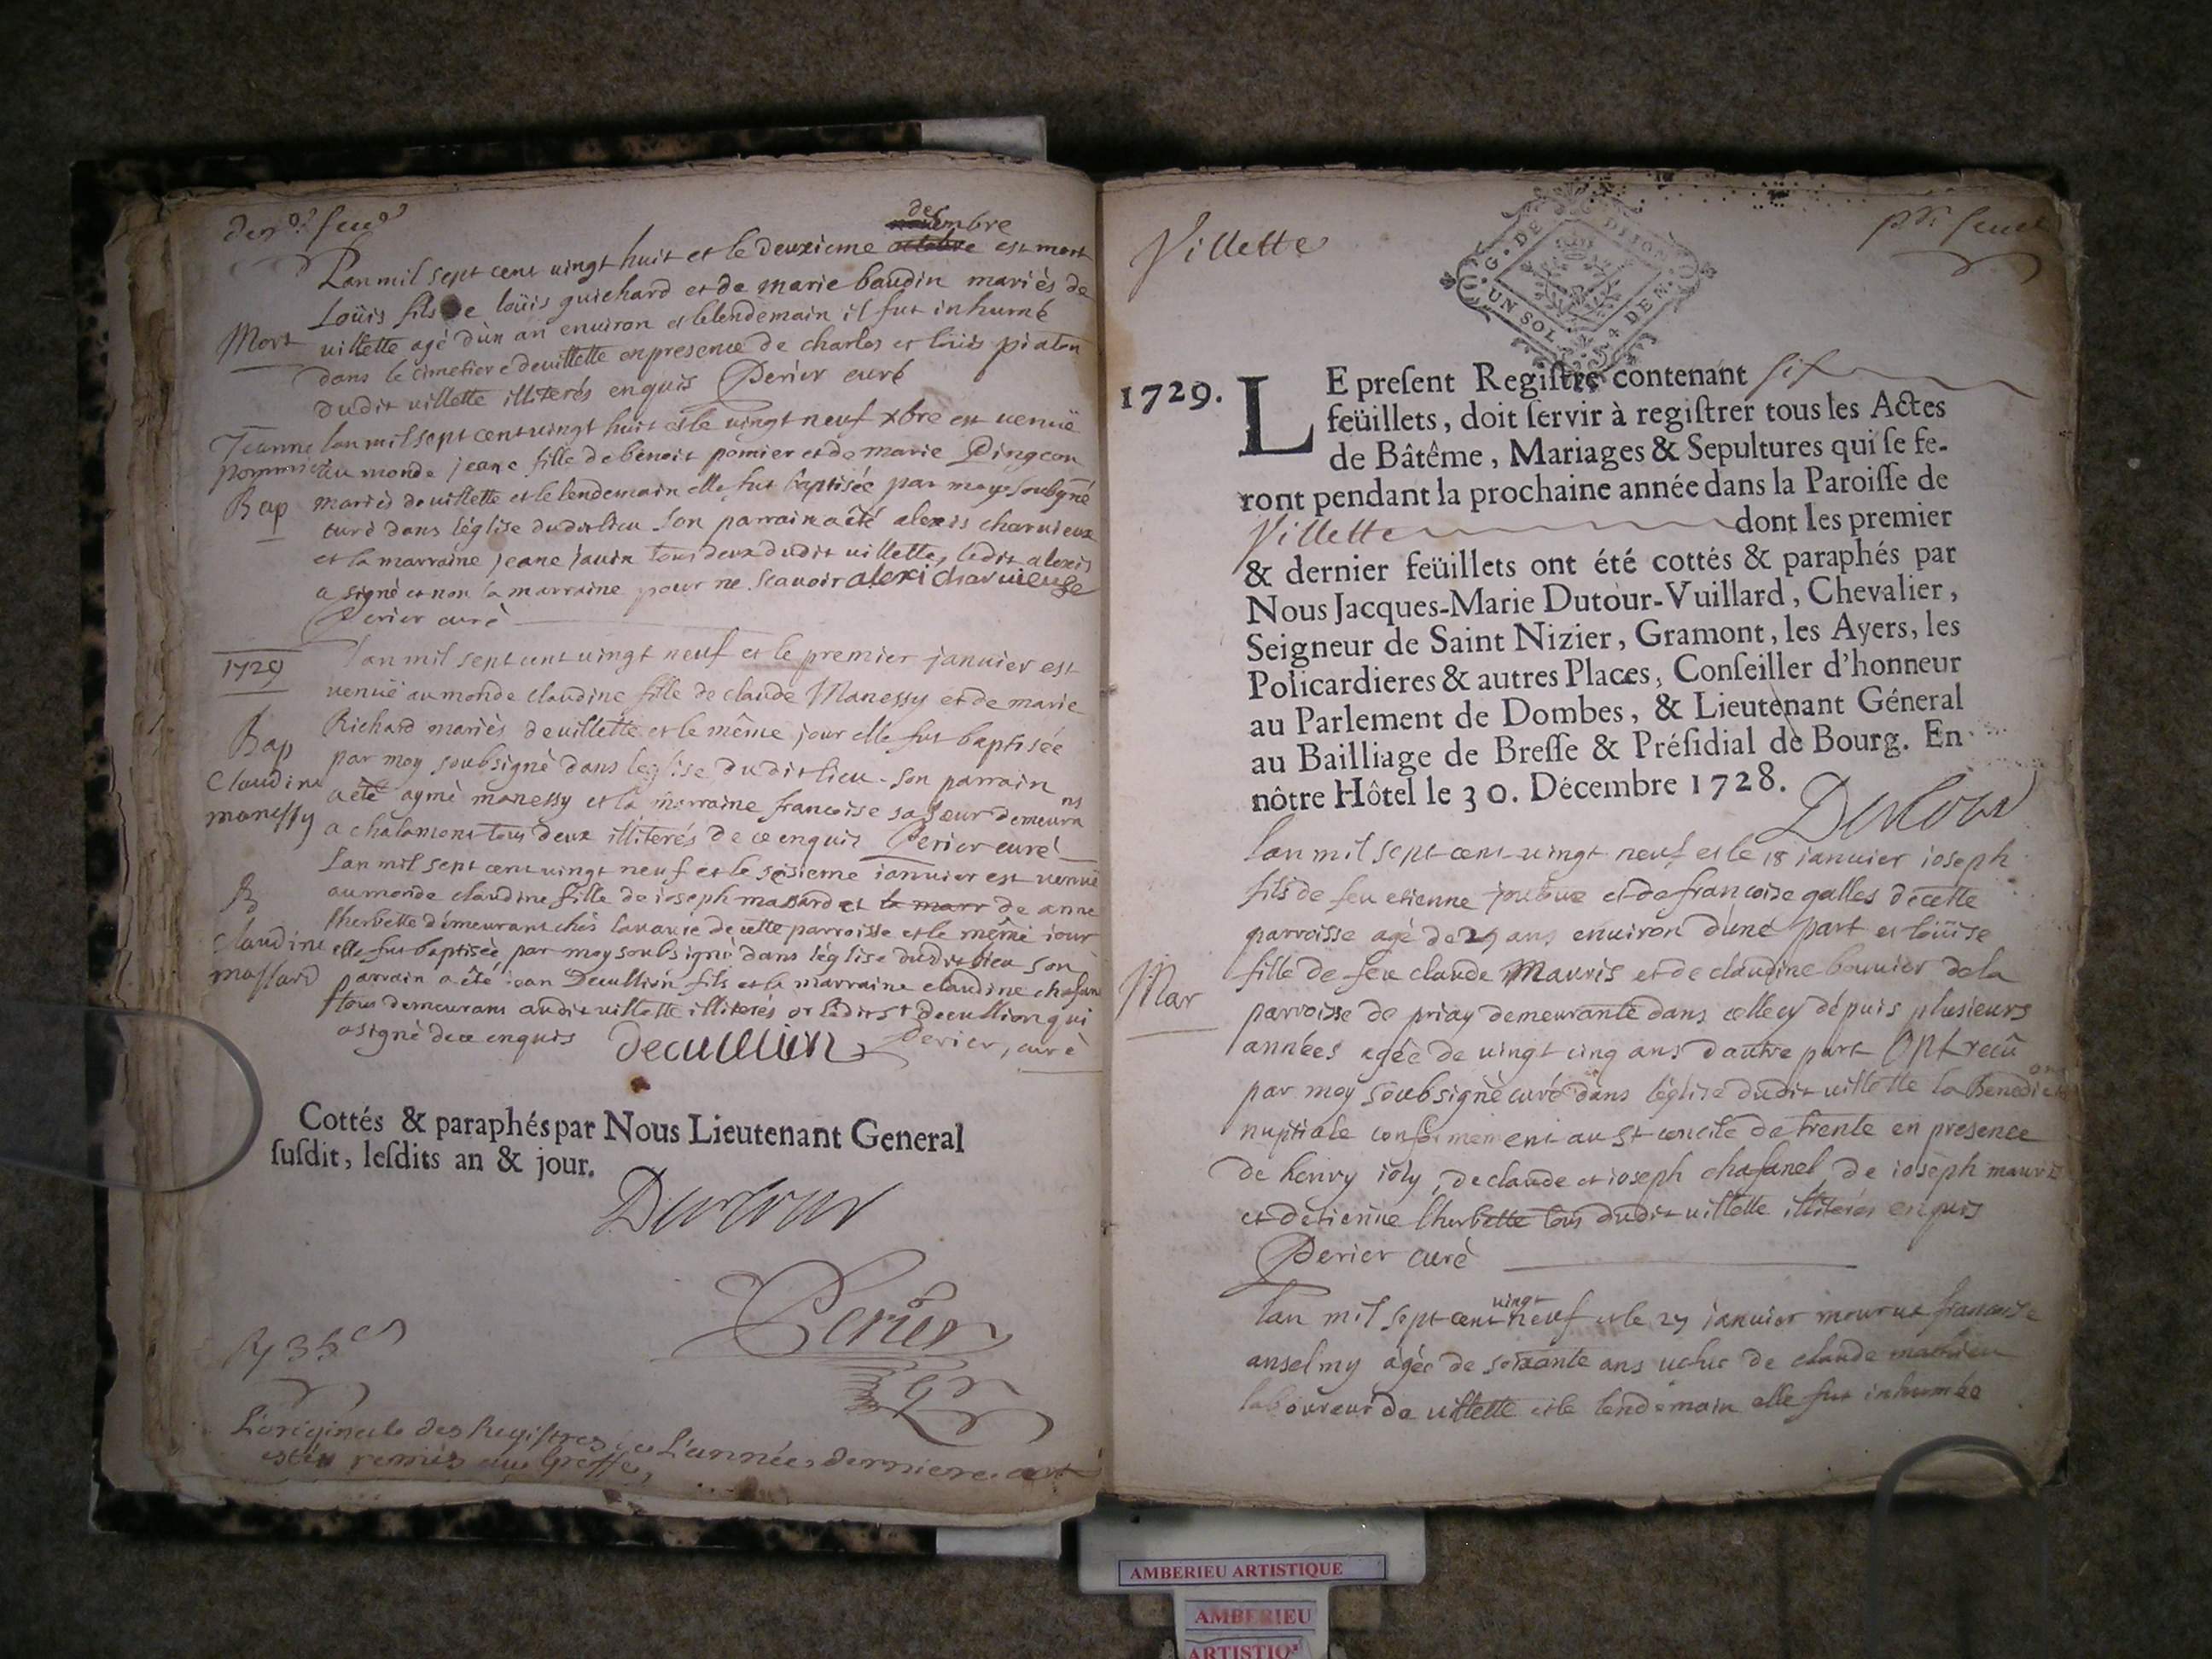 der.
decembre
Lan mil sept cent vingt huit et le deuxieme est mort
Loüis fils de loüis guichard et de marie baudin mariès de
Mort
villette agé dun an environ et le lendemain il fut inhumé
dans le cimetiere de villette en presence de charles et loüis piaton
dudit villette illiterés enquis Perier curé
Jeanne
pommier
Bap
lan mil sept cent vingt huit et le vingt neuf xbre est venuë
au monde jeane fille de benoit pomier et de marie Pingeon
mariés de villette et le lendemain elle fut baptisée par moy soubsigné
curé dans léglise dudit lieu son parrain a êté alexis charvieux
et la marraine jeane tous deux dudit villette, ledit alexis
a signé et non la marraine pour ne scavoir alexi charvieuse
Perier curé
1729
lan mil sept cent vingt neuf et le premier janvier est
venuë au monde claudine fille de claude Manessy et de marie
Bap
Claudine
manessy
Richard mariès de villette et le même jour elle fut baptisée
par moy soubsignè dans léglise dudit lieu son parrain
a êté aymè manessy et la marraine francoise sa sœur demeurans
a chalamont tous deux illiterés de ce enquis Perier curé
B
claudine
massard
Lan mil sept cent vingt neuf et le sesieme ianvier est venuë
au monde claudine fille de ioseph massard et la marr de anne
lherbette démeurant chés de cette parroisse et le même iour
elle fut baptisée par moy soubsigné dans léglise dudit lieu son
parrain a êté ian Decullion fils et la marraine claudine
tous demeurans audit villette illiterés or ledit Decullion qui
a signé de ce enquis decullion Perier, curé
Cottés & paraphés par Nous Lieutenant General
susdit, lesdits an & jour.
Dutour
Perier
L'originale des Registres de L'année derniere
esté remis au Greffe,
Villette
G. DE DIJON
UN SOL 4 DEN.
1729. LE present Registre contenant six
feüillets, doit servir à registrer tous les Actes
de Bâtême, Mariages & Sepultures qui se fe-
ront pendant la prochaine année dans la Paroisse de
Villette dont les premier
& dernier feüillets ont été cottés & paraphés par
Nous Jacques-Marie Dutour-Vuillard, Chevalier,
Seigneur de Saint Nizier, Gramont, les Ayers, les
Policardieres & autres Places, Conseiller d'honneur
au Parlement de Dombes, & Lieutenant Géneral
au Bailliage de Bresse & Présidial de Bourg. En
nôtre Hôtel le 30. Décembre 1728.
Dutour
lan mil sept cent vingt neuf et le 18 ianvier ioseph
fils de feu etienne et de francoise galles de cette
parroisse agé de 29 ans environ dune part et loüise
Mar
fille de feu claude Mauris et de claudine bouvier de la
parroisse de priay demeurante dans celle cy dépuis plusieurs
années agée de vingt cinq ans dautre part Ont recû
par moy soubsigné curé dans léglise dudit villette la Benediction
nuptiale conformement au St concile de trente en presence
de henry ioly, de claude et ioseph chafanel, de ioseph mauris
et détienne lherbette tous dudit villette illiterés enquis
Perier curé
lan mil sept cent vingt neuf et le 27 ianvier mourut francoise
anselmy agée de soixante ans vefue de claude mathieu
laboureur de villette et le lendemain elle fut inhumée
AMBERIEU ARTISTIQUE
AMBERIEU
ARTISTIQ